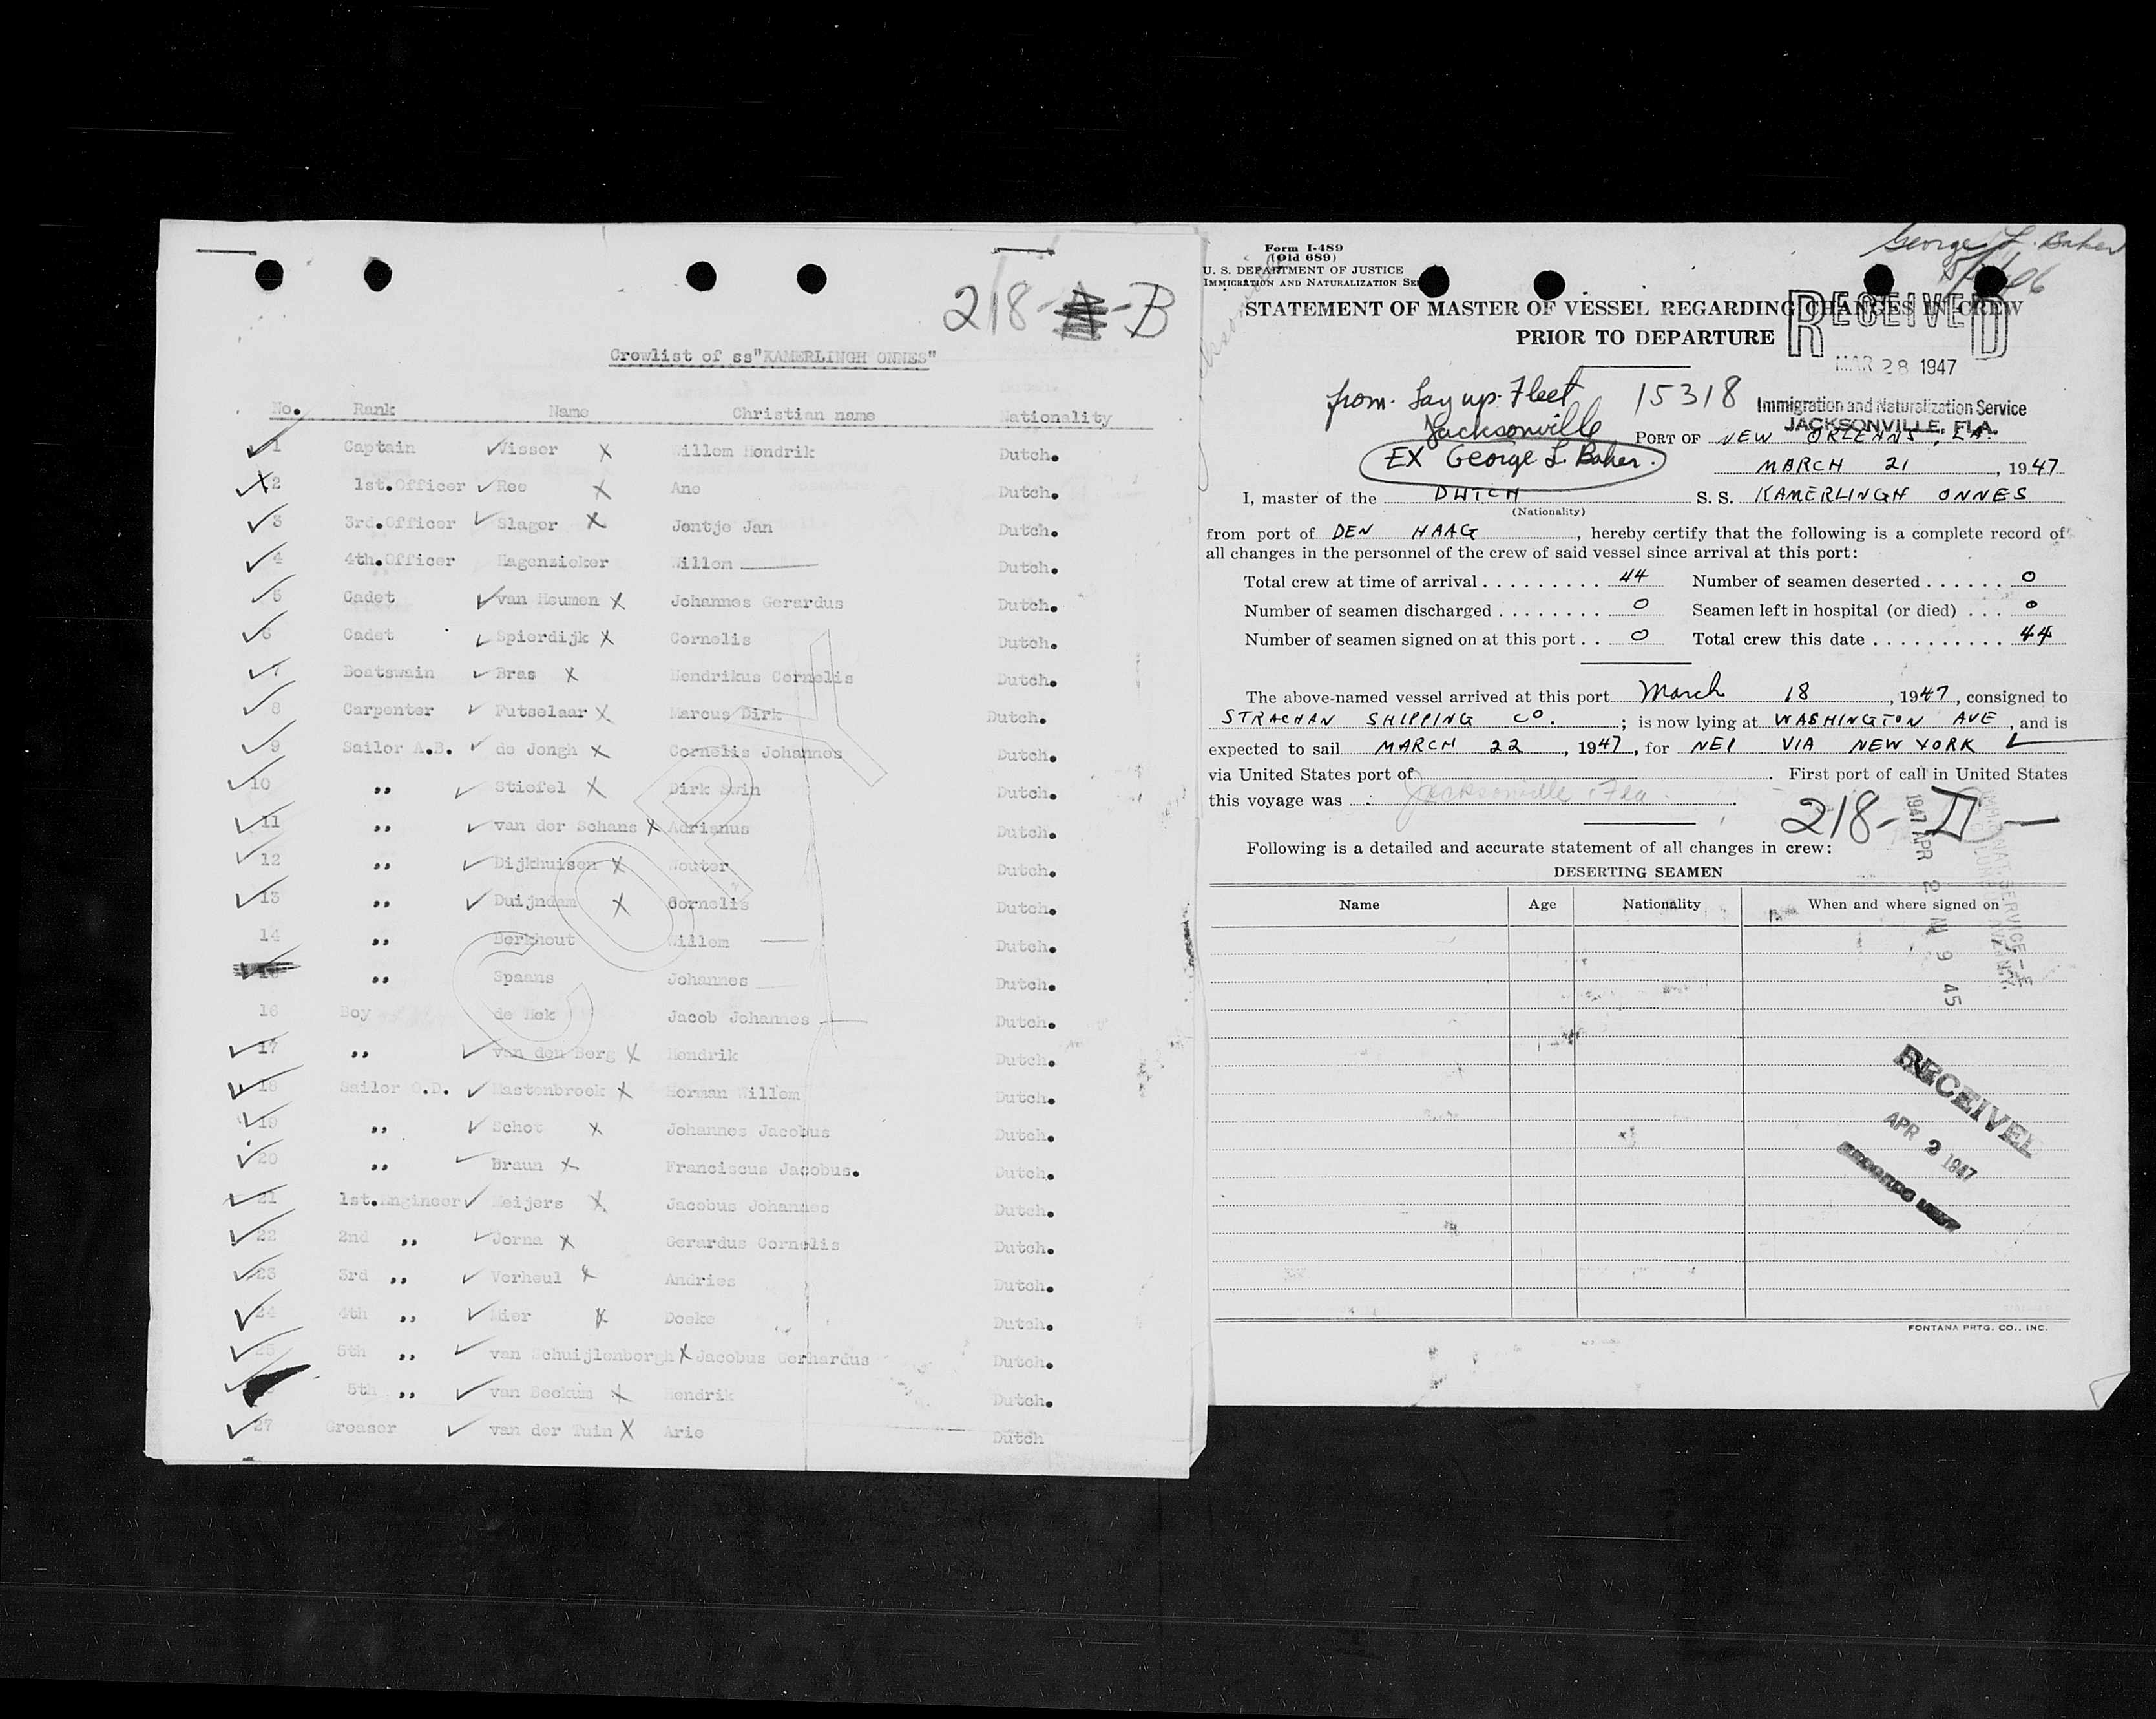 218-A-B
Crewlist of ss"KAMERLINGH ONNES"
No. Rank Name Christian name Nationality
1 Captain Visser X Willem Hendrik Dutch.
2 1st.Officer Ree X Ane Dutch.
3 3rd.Officer Slager X Jentje Jan Dutch.
4 4th.Officer Hagenzieker Willem Dutch.
5 Cadet van Heumen X Johannes Gerardus Dutch.
6 Cadet Spierdijk X Cornelis Dutch.
7 Boatswain Bras X Hendrikus Cornelis Dutch.
8 Carpenter Futselaar X Marcus Dirk Dutch.
9 Sailor A.B. de Jongh X Cornelis Johannes Dutch.
10 ,, Stiefel X Dirk Swin Dutch.
11 ,, van der Schans X Adrianus Dutch.
12 ,, Dijkhuisen X Wouter Dutch.
13 ,, Duijndam X Cornelis Dutch.
14 ,, Berkhout Willem Dutch.
15 ,, Spaans Johannes Dutch.
16 Boy de Hek Jacob Johannes Dutch.
17 ,, van den Berg X Hendrik Dutch.
18 Sailor O.D. Mastenbroek X Herman Willem Dutch.
19 ,, Schot X Johannes Jacobus Dutch.
20 ,, Braun X Franciscus Jacobus. Dutch.
21 1st.Engineer Meijers X Jacobus Johannes Dutch.
22 2nd ,, Jorna X Gerardus Cornelis Dutch.
23 3rd ,, Verheul X Andries Dutch.
24 4th ,, Mier X Doeke Dutch.
25 5th ,, van Schuijlenborgh X Jacobus Gerhardus Dutch.
5th ,, van Beekum X Hendrik Dutch.
27 Greaser van der Tuin X Arie Dutch
COPY
Form I-489
(Old 689)
U. S. DEPARTMENT OF JUSTICE
IMMIGRATION AND NATURALIZATION SE
George L. Baker
STATEMENT OF MASTER OF VESSEL REGARDING CHANGES IN CREW
PRIOR TO DEPARTURE
RECEIVED
MAR 28 1947
Immigration and Naturalization Service
JACKSONVILLE, FLA.
from Lay up Fleet 15318
Jacksonville
EX George L. Baker.
PORT OF NEW ORLEANS, LA.
MARCH 21, 1947
I, master of the DUTCH S. S. KAMERLINGH ONNES
(Nationality)
from port of DEN HAAG, hereby certify that the following is a complete record of
all changes in the personnel of the crew of said vessel since arrival at this port:
Total crew at time of arrival . . . . . . . . . 44 Number of seamen deserted . . . . . . 0
Number of seamen discharged . . . . . . . . 0 Seamen left in hospital (or died) . . . 0
Number of seamen signed on at this port . . 0 Total crew this date . . . . . . . . . . 44
The above-named vessel arrived at this port March 18, 1947, consigned to
STRACHAN SHIPPING CO. ; is now lying at WASHINGTON AVE, and is
expected to sail MARCH 22, 1947, for NEI VIA NEW YORK
via United States port of . First port of call in United States
this voyage was Jacksonville Fla.
218-D
Following is a detailed and accurate statement of all changes in crew:
DESERTING SEAMEN
Name Age Nationality When and where signed on
1947 APR 2 AM 9 45
RECEIVED
APR 2 1947
FONTANA PRTG. CO., INC.